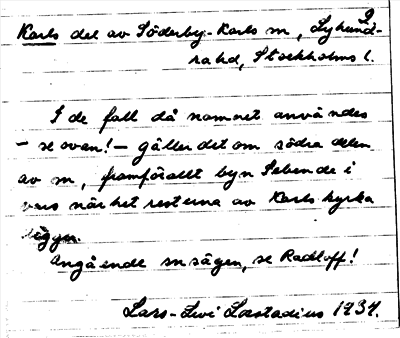 2
Karls del av Söderby-Karls sn, Lyhund-
ra hd, Stockholms l.
I de fall då namnet användes
– se ovan! – gäller det om södra delen
av sn, framförallt byn Sebende i
vars närhet resterna av Karls kyrka
ligger.
Angående snsägen, se Radloff!
Lars-Levi Læstadius 1934.